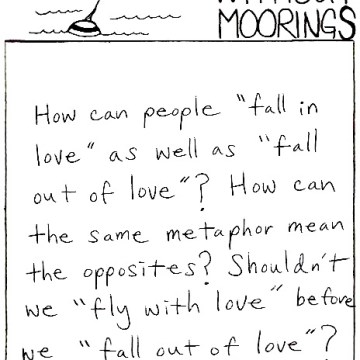 MOORINGS
How can people "fall in
love" as well as "fall
out of love"? How can
the same metaphor mean
the opposites? Shouldn't
we "fly with love" before
we "fall out of love"?